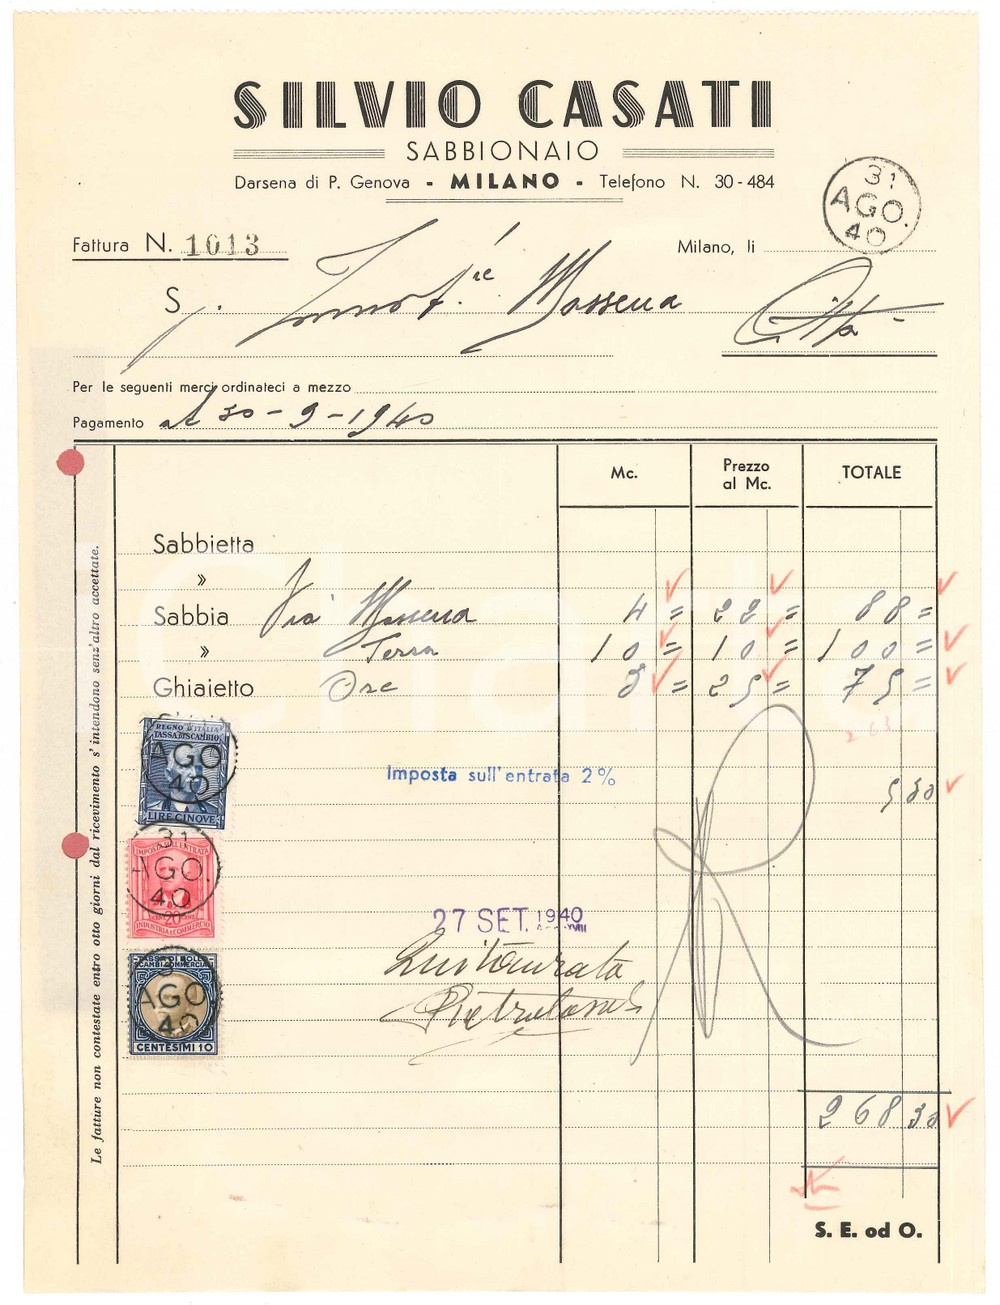 SILVIO CASATI
SABBIONAIO
Darsena di P. Genova - MILANO - Telefono N. 30-484
31 AGO. 40
Fattura N. 1013
Milano, li
S. Massena
Città -
Per le seguenti merci ordinateci a mezzo
Pagamento al 30-9-1940
Mc. Prezzo al Mc. TOTALE
Sabbietta
»
Sabbia Via Massena 4= 22= 88=
» Terra 10= 10= 100=
Ghiaietto Ore 3= 25= 75=
263
REGNO D'ITALIA
TASSA DI SCAMBIO
AGO. 40
LIRE CINQVE
Imposta sull'entrata 2% 5 30
IMPOSTA SULL'ENTRATA
31 AGO. 40
20
INDUSTRIA E COMMERCIO
27 SET. 1940
TASSA DI BOLLO
SCAMBI COMMERCIALI
AGO. 40
CENTESIMI 10
268 30
S. E. od O.
Le fatture non contestate entro otto giorni dal ricevimento s'intendono senz'altro accettate.